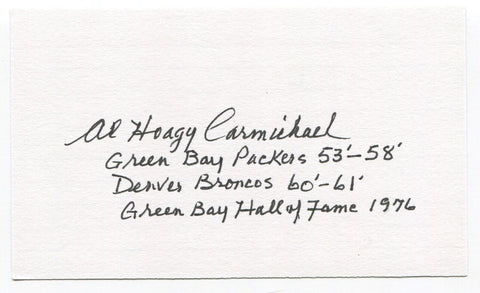 Al Hoagy Carmichael
Green Bay Packers 53'-58'
Denver Broncos 60'-61'
Green Bay Hall of Fame 1976